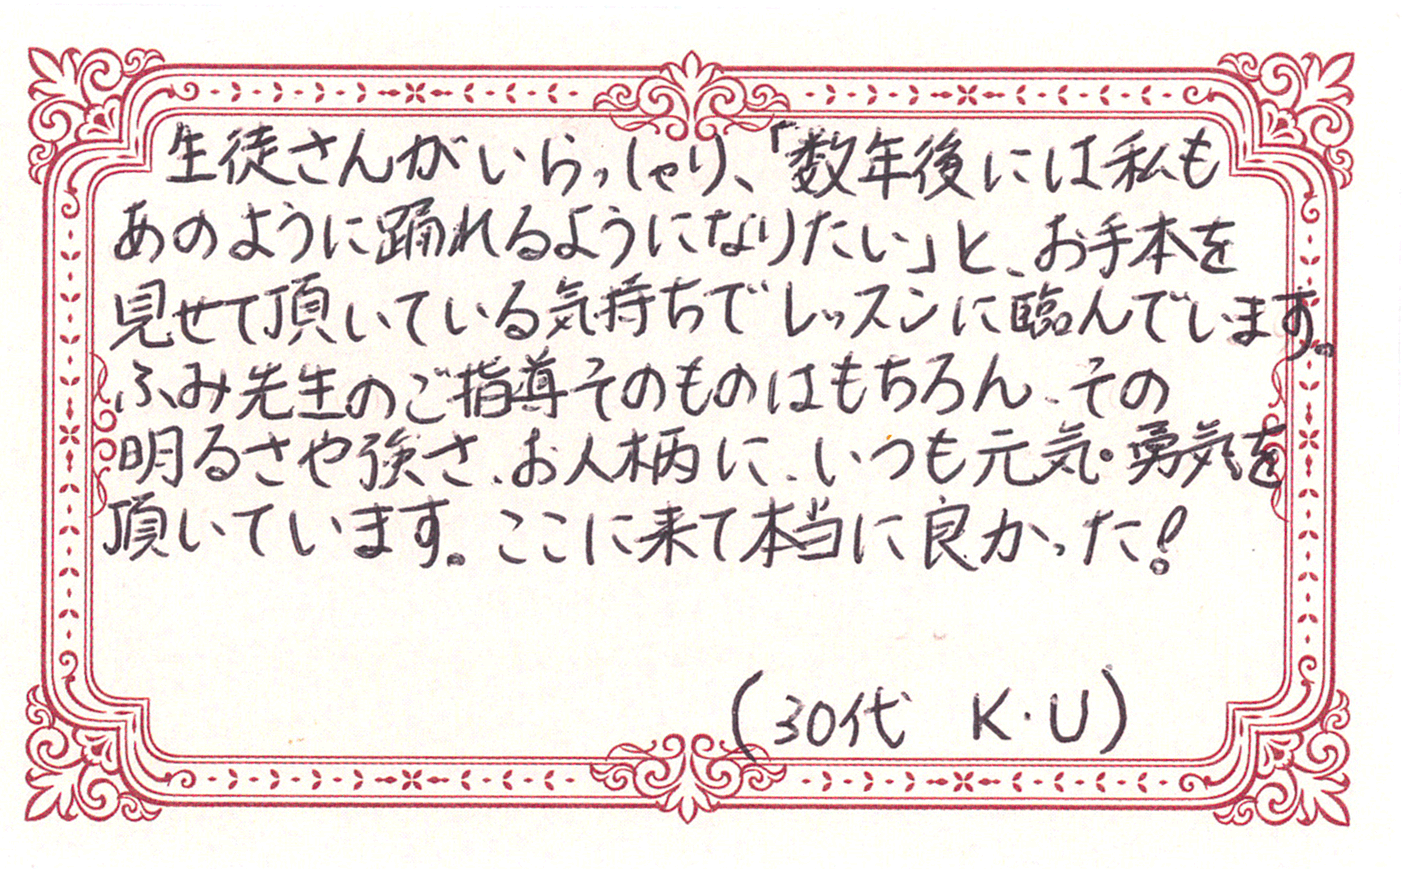 生徒さんがいらっしゃり、「数年後には私も
あのように踊れるようになりたい」と、お手本を
見せて頂いている気持ちでレッスンに臨んでいます。
ふみ先生のご指導そのものはもちろん、その
明るさや強さ、お人柄に、いつも元気・勇気を
頂いています。ここに来て本当に良かった!
(30代 K・U)